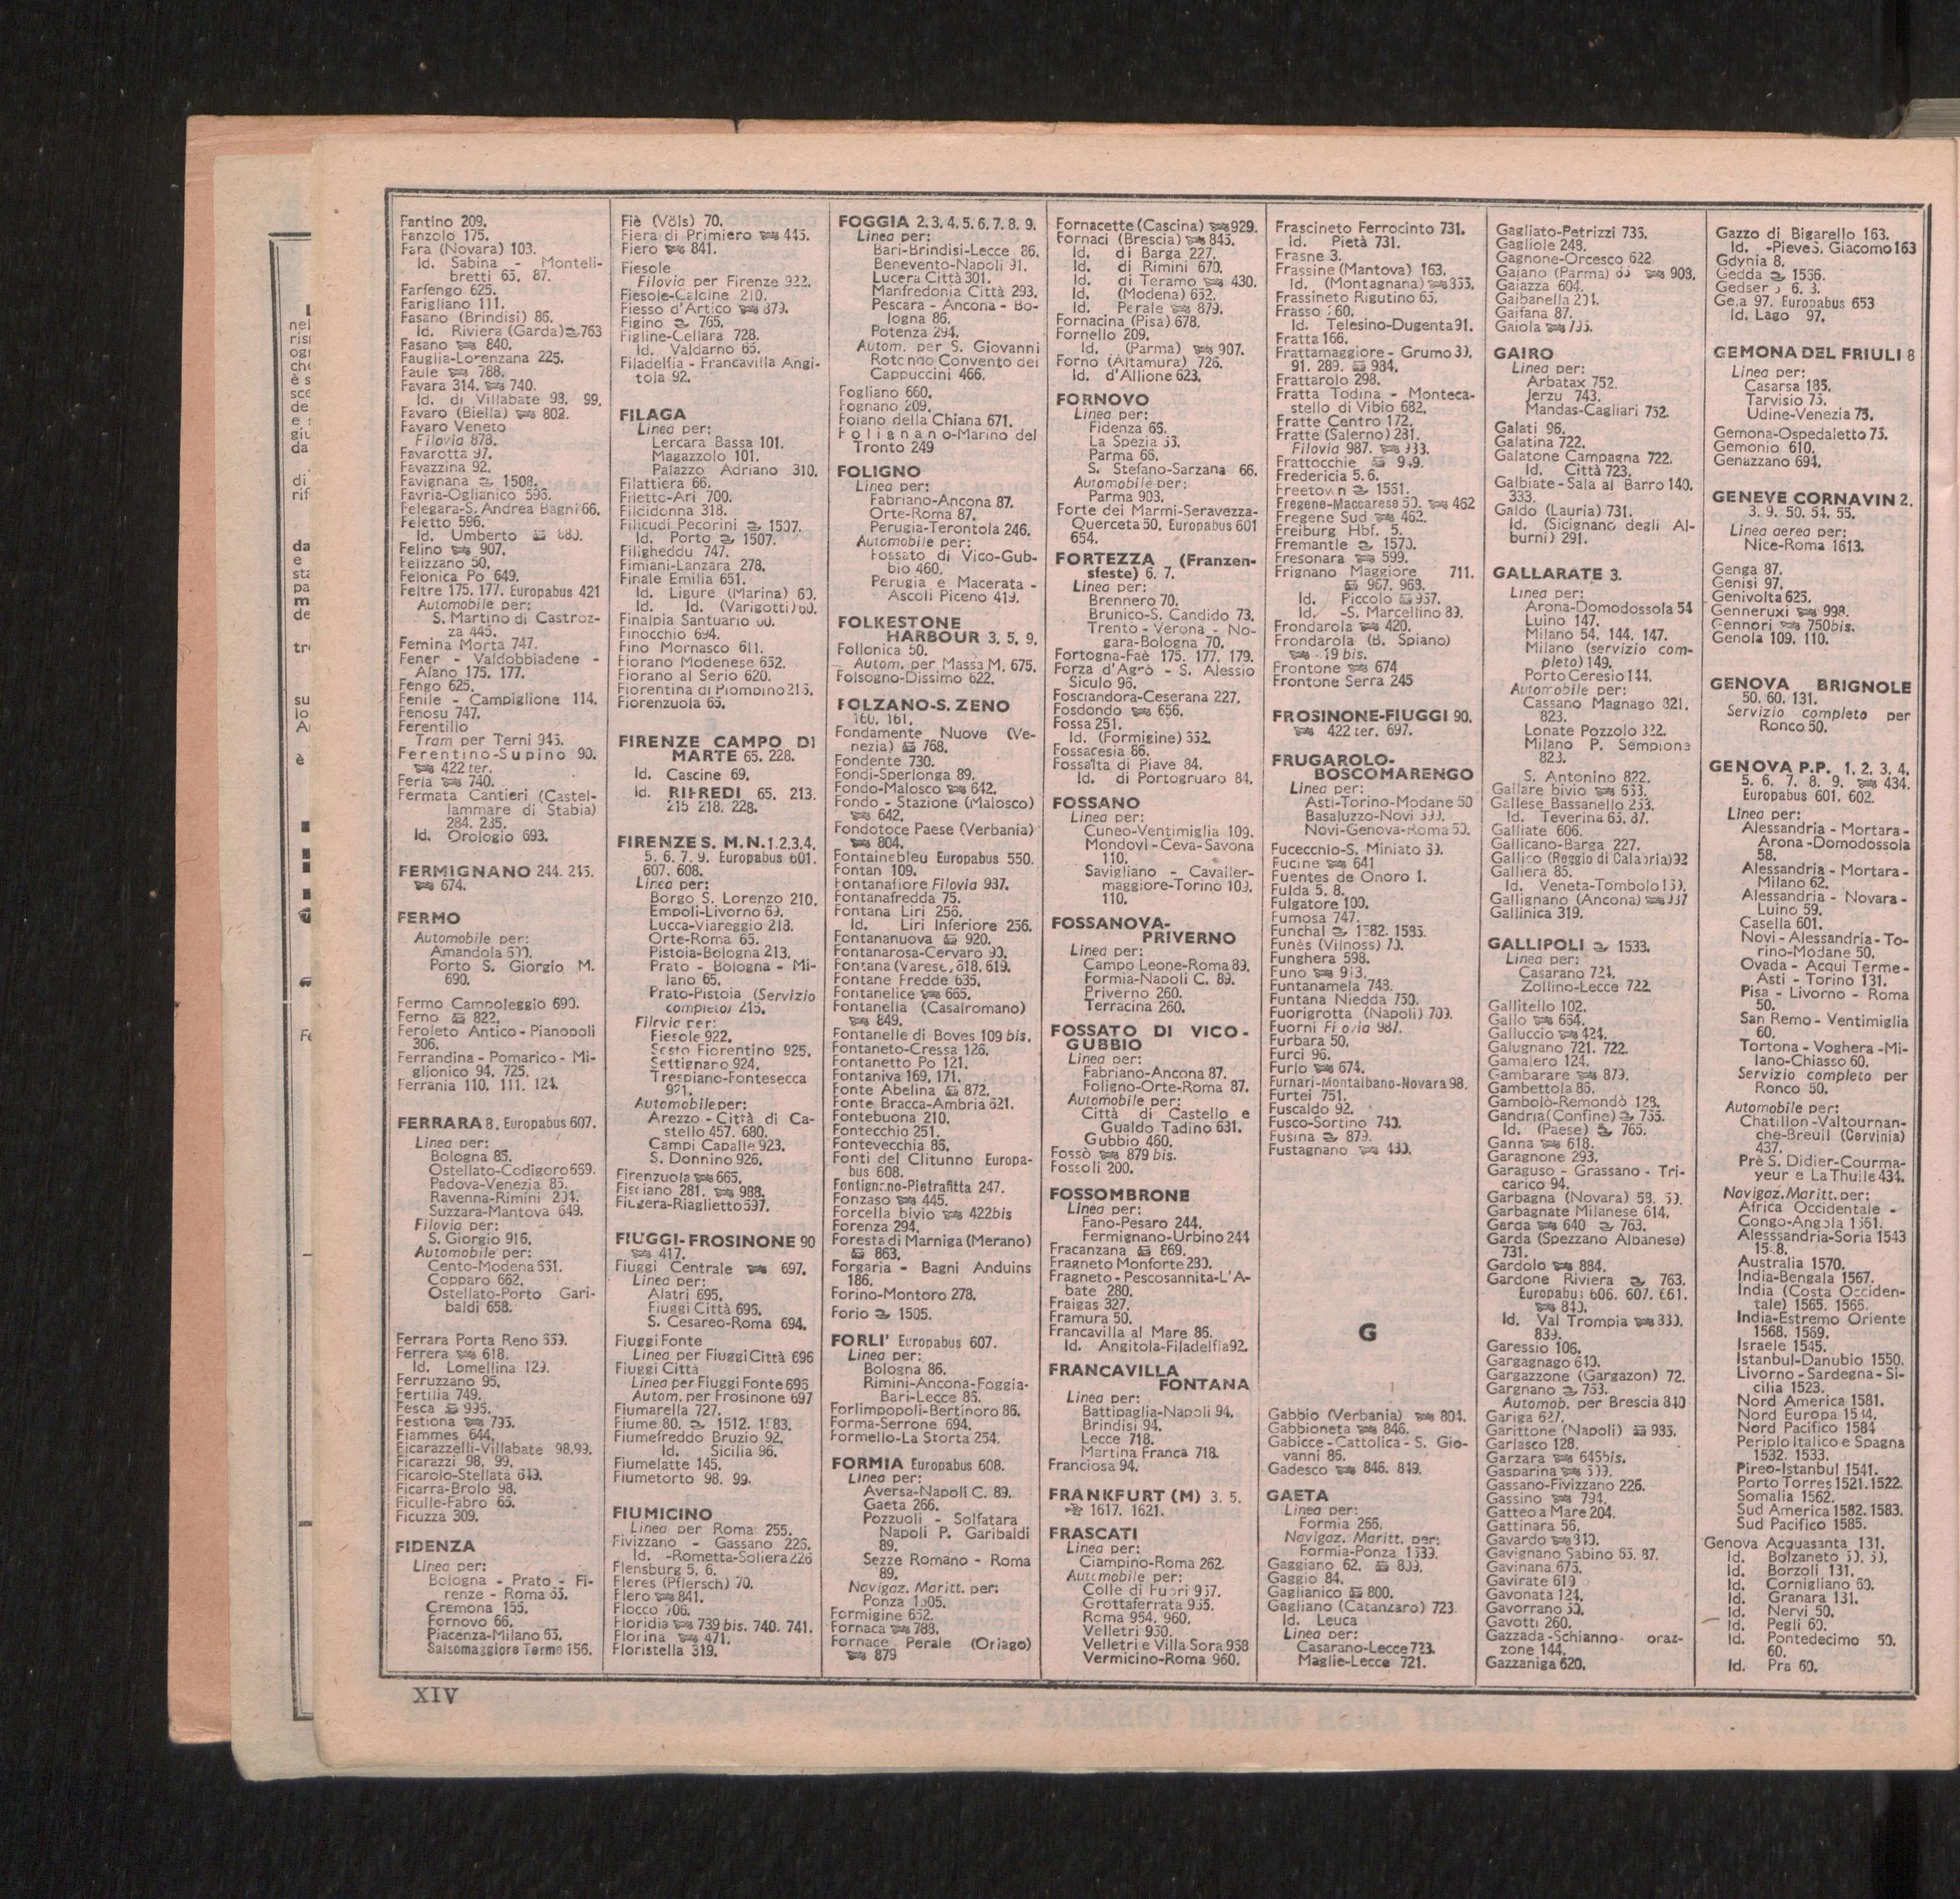 Fantino 209.
Fanzolo 175.
Fara (Novara) 103.
Id. Sabina - Monteli-
bretti 65. 87.
Farfengo 625.
Farigliano 111.
Fasano (Brindisi) 86.
Id. Riviera (Garda) 763
Fasano 840.
Fauglia-Lorenzana 225.
Faule 788.
Favara 314. 740.
Id. di Villabate 98. 99.
Favaro (Biella) 802.
Favaro Veneto
Filovia 878.
Favarotta 97.
Favazzina 92.
Favignana 1508.
Favria-Oglianico 596.
Felegara-S. Andrea Bagni 66.
Feletto 596.
Id. Umberto
Felino 907.
Felizzano 50.
Felonica Po 649.
Feltre 175. 177. Europabus 421
Automobile per:
S. Martino di Castroz-
za 445.
Femina Morta 747.
Fener - Valdobbiadene -
Alano 175. 177.
Fengo 625.
Fenile - Campiglione 114.
Fenosu 747.
Ferentillo
Tram per Terni 945.
Ferentino-Supino 90.
422 ter.
Ferla 740.
Fermata Cantieri (Castel-
lammare di Stabia)
284. 285.
Id. Orologio 693.
FERMIGNANO 244. 245.
674.
FERMO
Automobile per:
Amandola 690.
Porto S. Giorgio M.
690.
Fermo Campoleggio 690.
Ferno 822.
Feroleto Antico - Pianopoli
306.
Ferrandina - Pomarico - Mi-
glionico 94. 725.
Ferrania 110. 111. 124.
FERRARA 8. Europabus 607.
Linea per:
Bologna 85.
Ostellato-Codigoro 659.
Padova-Venezia 85.
Ravenna-Rimini 204.
Suzzara-Mantova 649.
Filovia per:
S. Giorgio 916.
Automobile per:
Cento-Modena 651.
Copparo 662.
Ostellato-Porto Gari-
baldi 658.
Ferrara Porta Reno 659.
Ferrera 618.
Id. Lomellina 129.
Ferruzzano 95.
Fertilia 749.
Fesca 995.
Festiona 795.
Fiammes 644.
Ficarazzelli-Villabate 98.99.
Ficarazzi 98. 99.
Ficarolo-Stellata 649.
Ficarra-Brolo 98.
Ficulle-Fabro 65.
Ficuzza 309.
FIDENZA
Linea per:
Bologna - Prato - Fi-
renze - Roma 65.
Cremona 155.
Fornovo 66.
Piacenza-Milano 65.
Salsomaggiore Terme 156.
Fiè (Völs) 70.
Fiera di Primiero 445.
Fiero 841.
Fiesole
Filovia per Firenze 922.
Fiesole-Caldine 210.
Fiesso d'Artico 879.
Figino 765.
Figline-Cellara 728.
Id. Valdarno 65.
Filadelfia - Francavilla Angi-
tola 92.
FILAGA
Linea per:
Lercara Bassa 101.
Magazzolo 101.
Palazzo Adriano 310.
Filattiera 66.
Filetto-Ari 700.
Filcidonna 318.
Filicudi Pecorini 1507.
Id. Porto 1507.
Filigheddu 747.
Fimiani-Lanzara 278.
Finale Emilia 651.
Id. Ligure (Marina) 60.
Id. Id. (Varigotti) 60.
Finalpia Santuario 60.
Finocchio 694.
Fino Mornasco 611.
Fiorano Modenese 652.
Fiorano al Serio 620.
Fiorentina di Piombino 215.
Fiorenzuola 65.
FIRENZE CAMPO DI
MARTE 65. 228.
Id. Cascine 69.
Id. RIFREDI 65. 213.
215 218. 228.
FIRENZE S. M. N. 1.2.3.4.
5. 6. 7. 9. Europabus 601.
607. 608.
Linea per:
Borgo S. Lorenzo 210.
Empoli-Livorno 69.
Lucca-Viareggio 218.
Orte-Roma 65.
Pistoia-Bologna 213.
Prato - Bologna - Mi-
lano 65.
Prato-Pistoia (Servizio
completo) 215.
Filovia per:
Fiesole 922.
Sesto Fiorentino 925.
Settignano 924.
Trespiano-Fontesecca
921.
Automobile per:
Arezzo - Città di Ca-
stello 457. 680.
Campi Capalle 923.
S. Donnino 926.
Firenzuola 665.
Fisciano 281. 988.
Fiugera-Riaglietto 597.
FIUGGI-FROSINONE 90
417.
Fiuggi Centrale 697.
Linea per:
Alatri 695.
Fiuggi Città 696.
S. Cesareo-Roma 694.
Fiuggi Fonte
Linea per Fiuggi Città 696
Fiuggi Città
Linea per Fiuggi Fonte 696
Autom. per Frosinone 697
Fiumarella 727.
Fiume 80. 1512. 1583.
Fiumefreddo Bruzio 92.
Id. Sicilia 96.
Fiumelatte 145.
Fiumetorto 98. 99.
FIUMICINO
Linea per Roma 255.
Fivizzano - Gassano 226.
Id. -Rometta-Soliera 226
Flensburg 5. 6.
Fleres (Pflersch) 70.
Flero 841.
Flocco 706.
Floridia 739 bis. 740. 741.
Florina 471.
Floristella 319.
FOGGIA 2.3.4.5.6.7.8.9.
Linea per:
Bari-Brindisi-Lecce 86.
Benevento-Napoli 91.
Lucera Città 301.
Manfredonia Città 293.
Pescara - Ancona - Bo-
logna 86.
Potenza 294.
Autom. per S. Giovanni
Rotondo Convento dei
Cappuccini 466.
Fogliano 660.
Fognano 209.
Foiano della Chiana 671.
Folignano-Marino del
Tronto 249
FOLIGNO
Linea per:
Fabriano-Ancona 87.
Orte-Roma 87.
Perugia-Terontola 246.
Automobile per:
Fossato di Vico-Gub-
bio 460.
Perugia e Macerata -
Ascoli Piceno 419.
FOLKESTONE
HARBOUR 3. 5. 9.
Follonica 50.
Autom. per Massa M. 675.
Folsogno-Dissimo 622.
FOLZANO-S. ZENO
160. 161.
Fondamente Nuove (Ve-
nezia) 768.
Fondente 730.
Fondi-Sperlonga 89.
Fondo-Malosco 642.
Fondo - Stazione (Malosco)
642.
Fondotoce Paese (Verbania)
804.
Fontainebleu Europabus 550.
Fontan 109.
Fontanafiore Filovia 937.
Fontanafredda 75.
Fontana Liri 256.
Id. Liri Inferiore 256.
Fontananuova 920.
Fontanarosa-Cervaro 90.
Fontana (Varese) 618. 619.
Fontane Fredde 635.
Fontanelice 665.
Fontanella (Casalromano)
849.
Fontanelle di Boves 109 bis.
Fontaneto-Cressa 126.
Fontanetto Po 121.
Fontaniva 169. 171.
Fonte Abelina 872.
Fonte Bracca-Ambria 621.
Fontebuona 210.
Fontecchio 251.
Fontevecchia 86.
Fonti del Clitunno Europa-
bus 608.
Fontignano-Pietrafitta 247.
Fonzaso 445.
Forcella bivio 422bis
Forenza 294.
Foresta di Marniga (Merano)
863.
Forgaria - Bagni Anduins
186.
Forino-Montoro 278.
Forio 1505.
FORLI' Europabus 607.
Linea per:
Bologna 86.
Rimini-Ancona-Foggia-
Bari-Lecce 86.
Forlimpopoli-Bertinoro 86.
Forma-Serrone 694.
Formello-La Storta 254.
FORMIA Europabus 608.
Linea per:
Aversa-Napoli C. 89.
Gaeta 266.
Pozzuoli - Solfatara
Napoli P. Garibaldi
89.
Sezze Romano - Roma
89.
Navigaz. Maritt. per:
Ponza 1505.
Formigine 652.
Fornaca 788.
Fornace Perale (Oriago)
879
Fornacette (Cascina) 929.
Fornaci (Brescia) 845.
Id. di Barga 227.
Id. di Rimini 670.
Id. di Teramo 430.
Id. (Modena) 652.
Id. Perale 879.
Fornacina (Pisa) 678.
Fornello 209.
Id. (Parma) 907.
Forno (Altamura) 726.
Id. d'Allione 623.
FORNOVO
Linea per:
Fidenza 66.
La Spezia 66.
Parma 66.
S. Stefano-Sarzana 66.
Automobile per:
Parma 903.
Forte dei Marmi-Seravezza-
Querceta 50. Europabus 601
654.
FORTEZZA (Franzen-
sfeste) 6. 7.
Linea per:
Brennero 70.
Brunico-S. Candido 73.
Trento - Verona - No-
gara-Bologna 70.
Fortogna-Faè 175. 177. 179.
Forza d'Agrò - S. Alessio
Siculo 96.
Fosciandora-Ceserana 227.
Fosdondo 656.
Fossa 251.
Id. (Formigine) 652.
Fossacesia 86.
Fossalta di Piave 84.
Id. di Portogruaro 84.
FOSSANO
Linea per:
Cuneo-Ventimiglia 109.
Mondovì - Ceva - Savona
110.
Savigliano - Cavaller-
maggiore-Torino 109.
110.
FOSSANOVA-
PRIVERNO
Linea per:
Campo Leone-Roma 89.
Formia-Napoli C. 89.
Priverno 260.
Terracina 260.
FOSSATO DI VICO -
GUBBIO
Linea per:
Fabriano-Ancona 87.
Foligno-Orte-Roma 87.
Automobile per:
Città di Castello e
Gualdo Tadino 631.
Gubbio 460.
Fossò 879 bis.
Fossoli 200.
FOSSOMBRONE
Linea per:
Fano-Pesaro 244.
Fermignano-Urbino 244
Fracanzana 869.
Fragneto Monforte 280.
Fragneto - Pescosannita-L'A-
bate 280.
Fraigas 327.
Framura 50.
Francavilla al Mare 86.
Id. Angitola-Filadelfia 92.
FRANCAVILLA
FONTANA
Linea per:
Battipaglia-Napoli 94.
Brindisi 94.
Lecce 718.
Martina Franca 718.
Franciosa 94.
FRANKFURT (M) 3. 5.
1617. 1621.
FRASCATI
Linea per:
Ciampino-Roma 262.
Automobile per:
Colle di Fuori 957.
Grottaferrata 955.
Roma 954. 960.
Velletri 950.
Velletri e Villa Sora 958
Vermicino-Roma 960.
Frascineto Ferrocinto 731.
Id. Pietà 731.
Frasne 3.
Frassine (Mantova) 163.
Id. (Montagnana) 355.
Frassineto Rigutino 65.
Frasso 260.
Id. Telesino-Dugenta 91.
Fratta 166.
Frattamaggiore - Grumo 39.
91. 289. 984.
Frattarolo 298.
Fratta Todina - Monteca-
stello di Vibio 682.
Fratte Centro 172.
Fratte (Salerno) 281.
Filovia 987.
Frattocchie
Fredericia 5.6.
Freetown 1561.
Fregene-Maccarese 50. 462
Fregene Sud 462.
Freiburg Hbf. 5.
Fremantle 1570.
Fresonara 599.
Frignano Maggiore 711.
967. 968.
Id. Piccolo 957.
Id. -S. Marcellino 89.
Frondarola 420.
Frondarola (B. Spiano)
419 bis.
Frontone 674
Frontone Serra 245
FROSINONE-FIUGGI 90.
422 ter. 697.
FRUGAROLO-
BOSCOMARENGO
Linea per:
Asti-Torino-Modane 50
Basaluzzo-Novi 599.
Novi-Genova-Roma 50.
Fucecchio-S. Miniato 69.
Fucine 641
Fuentes de Onoro 1.
Fulda 5. 8.
Fulgatore 100.
Fumosa 747.
Funchal 1582. 1585.
Funès (Vilnoss) 70.
Funghera 598.
Funo 913.
Funtanamela 743.
Funtana Niedda 750.
Fuorigrotta (Napoli) 709.
Fuorni Filovia 987.
Furbara 50.
Furci 96.
Furlo 674.
Furnari-Montalbano-Novara 98.
Furtei 751.
Fuscaldo 92.
Fusco-Sortino 740.
Fusina 879.
Fustagnano 430.
G
Gabbio (Verbania) 804.
Gabbioneta 846.
Gabicce - Cattolica - S. Gio-
vanni 86.
Gadesco 846. 849.
GAETA
Linea per:
Formia 266.
Navigaz. Maritt. per:
Formia-Ponza 1509.
Gaggiano 62. 809.
Gaggio 84.
Gaglianico 800.
Gagliano (Catanzaro) 723
Id. Leuca
Linea per:
Casarano-Lecce 723.
Maglie-Lecce 721.
Gagliato-Petrizzi 735.
Gagliole 248.
Gagnone-Orcesco 622
Gaiano (Parma) 66 908.
Gaiazza 604.
Gaibanella 204.
Gaifana 87.
Gaiola 795.
GAIRO
Linea per:
Arbatax 752.
Jerzu 743.
Mandas-Cagliari 752.
Galati 96.
Galatina 722.
Galatone Campagna 722.
Id. Città 723.
Galbiate - Sala al Barro 140.
333.
Galdo (Lauria) 731.
Id. (Sicignano degli Al-
burni) 291.
GALLARATE 3.
Linea per:
Arona-Domodossola 54
Luino 147.
Milano 54. 144. 147.
Milano (servizio com-
pleto) 149.
Porto Ceresio 144.
Automobile per:
Cassano Magnago 821.
823.
Lonate Pozzolo 822.
Milano P. Sempione
823.
S. Antonino 822.
Gallare bivio 653.
Gallese Bassanello 253.
Id. Teverina 65. 87.
Galliate 606.
Gallicano-Barga 227.
Gallico (Reggio di Calabria) 92
Galliera 85.
Id. Veneta-Tombolo 169.
Gallignano (Ancona) 937
Gallinica 319.
GALLIPOLI 1533.
Linea per:
Casarano 724.
Zollino-Lecce 722.
Gallitello 102.
Gallo 654.
Galluccio 424.
Galugnano 721. 722.
Gamalero 124.
Gambarare 879.
Gambettola 86.
Gambolò-Remondò 128.
Gandria (Confine) 765.
Id. (Paese) 765.
Ganna 618.
Garagnone 293.
Garaguso - Grassano - Tri-
carico 94.
Garbagna (Novara) 58. 59.
Garbagnate Milanese 614.
Garda 640 763.
Garda (Spezzano Albanese)
731.
Gardolo 884.
Gardone Riviera 763.
Europabus 606. 607. 661.
840.
Id. Val Trompia 839.
839.
Garessio 106.
Gargagnago 640.
Gargazzone (Gargazon) 72.
Gargnano 763.
Automob. per Brescia 840
Gariga 627.
Garittone (Napoli) 985.
Garlasco 128.
Garzara 646bis.
Gasparina
Gassano-Fivizzano 226.
Gassino 794.
Gatteo a Mare 204.
Gattinara 56.
Gavardo 840.
Gavignano Sabino 65. 87.
Gavinana 676.
Gavirate 619
Gavonata 124.
Gavorrano 50.
Gavotti 260.
Gazzada-Schianno- oraz-
zone 144.
Gazzaniga 620.
Gazzo di Bigarello 163.
Id. -Pieve S. Giacomo 163
Gdynia 8.
Gedda 1566.
Gedser 5 6. 3.
Ge.a 97. Europabus 653
Id. Lago 97.
GEMONA DEL FRIULI 8
Linea per:
Casarsa 185.
Tarvisio 75.
Udine-Venezia 75.
Gemona-Ospedaletto 75.
Gemonio 610.
Genazzano 694.
GENEVE CORNAVIN 2.
3. 9. 50. 54. 55.
Linea aerea per:
Nice-Roma 1613.
Genga 87.
Genisi 97.
Genivolta 625.
Genneruxi 998.
Gennori 750bis.
Genola 109. 110.
GENOVA BRIGNOLE
50. 60. 131.
Servizio completo per
Ronco 50.
GENOVA P.P. 1. 2. 3. 4.
5. 6. 7. 8. 9. 434.
Europabus 601. 602.
Linea per:
Alessandria - Mortara -
Arona -Domodossola
58.
Alessandria - Mortara -
Milano 62.
Alessandria - Novara -
Luino 59.
Casella 601.
Novi - Alessandria - To-
rino-Modane 50.
Ovada - Acqui Terme -
Asti - Torino 131.
Pisa - Livorno - Roma
50.
San Remo - Ventimiglia
60.
Tortona - Voghera -Mi-
lano-Chiasso 60.
Servizio completo per
Ronco 50.
Automobile per:
Chatillon -Valtournan-
che-Breuil (Cervinia)
437.
Prè S. Didier-Courma-
yeur e La Thuile 434.
Navigaz. Maritt. per:
Africa Occidentale -
Congo-Angola 1561.
Alesssandria-Soria 1543
Australia 1570.
India-Bengala 1567.
India (Costa Occiden-
tale) 1565. 1566.
India-Estremo Oriente
1568. 1569.
Israele 1545.
Istanbul-Danubio 1550.
Livorno - Sardegna - Si-
cilia 1523.
Nord America 1581.
Nord Europa 1594.
Nord Pacifico 1584
Periplo Italico e Spagna
1532. 1533.
Pireo-Istanbul 1541.
Porto Torres 1521.1522.
Somalia 1562.
Sud America 1582. 1583.
Sud Pacifico 1585.
Genova Acquasanta 131.
Id. Bolzaneto 50. 60.
Id. Borzoli 131.
Id. Cornigliano 60.
Id. Granara 131.
Id. Nervi 50.
Id. Pegli 60.
Id. Pontedecimo 50.
60.
Id. Pra 60.
XIV